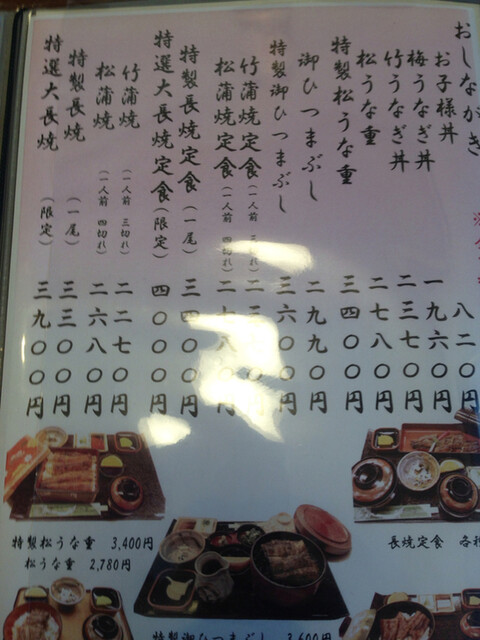 おしながき
お子様丼 八二〇円
梅うなぎ丼 一九六〇円
竹うなぎ丼 二三七〇円
松うな重 二七八〇円
特製松うな重 三四〇〇円
御ひつまぶし 二九九〇円
特製御ひつまぶし 三六〇〇円
竹蒲焼定食(一人前
松蒲焼定食(一人前 四切れ) 二七八〇円
特製長焼定食(一尾) 三四〇〇円
特選大長焼定食(限定) 四〇〇〇円
竹蒲焼(一人前 三切れ) 二二七〇円
松蒲焼(一人前 四切れ) 二六八〇円
特製長焼(一尾) 三三〇〇円
特選大長焼(限定) 三九〇〇円
特製松うな重 3,400円
松うな重 2,780円
長焼定食 各種
特製御ひつまぶし 3,600円